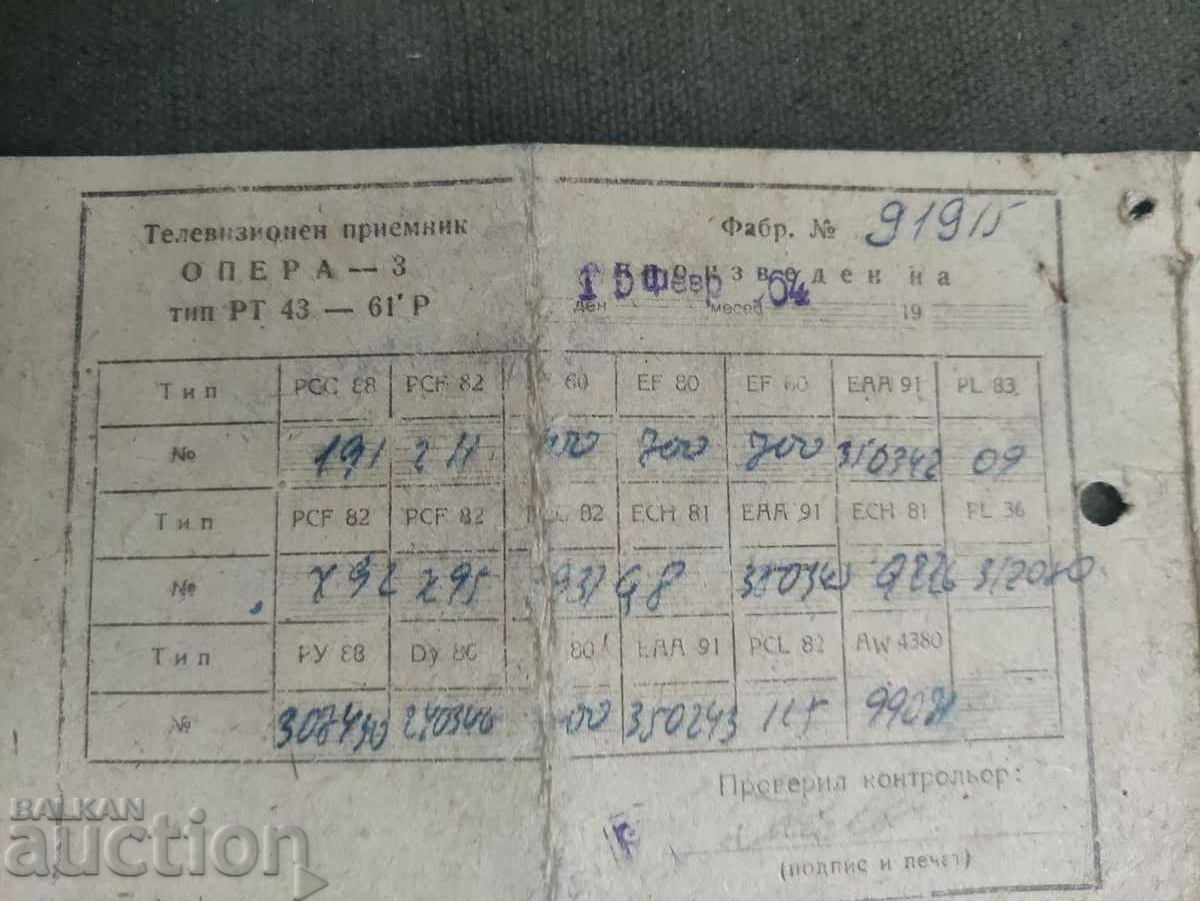 Телевизионен приемник
ОПЕРА — 3
тип РТ 43 — 61' Р
Фабр. № 91915
Произведен на
15 Февр 64
ден месец 19
Тип PCC 88 PCF 82 60 EF 80 EF 80 EAA 91 PL 83
№ 191 211 700 700 310342 09
Тип PCF 82 PCF 82 82 ECH 81 EAA 91 ECH 81 PL 36
№ 792 795 931 98 350345 9226
Тип PY 88 DY 86 80 EAA 91 PCL 82 AW 4380
№ 307430 240346 00 350243 115
Проверил контрольор:
(подпис и печат)
BALKAN
auction